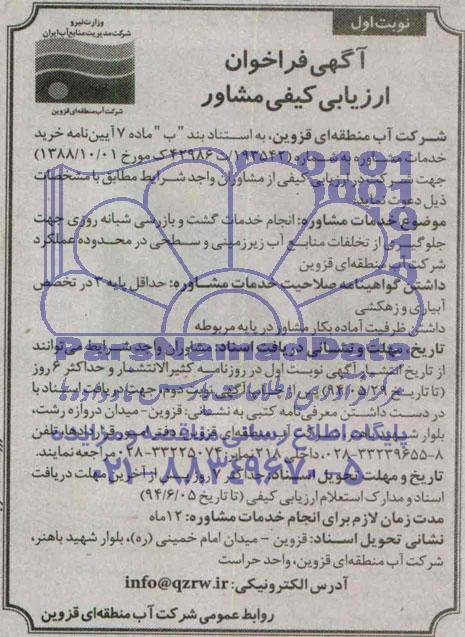 نوبت اول
وزارت نیرو
شرکت مدیریت منابع آب ایران
شرکت آب منطقه‌ای قزوین
آگهی فراخوان
ارزیابی کیفی مشاور
شرکت آب منطقه‌ای قزوین، به استناد بند "ب" ماده ۷ آیین‌نامه خرید
خدمات مشاوره به شماره (۱۹۳۵۴۲/ت ۴۲۹۸۶ک مورخ ۱۳۸۸/۱۰/۰۱)
جهت شرکت در ارزیابی کیفی از مشاوران واجد شرایط مطابق با مشخصات
ذیل دعوت نماید.
موضوع خدمات مشاوره: انجام خدمات گشت و بازرسی شبانه روزی جهت
جلوگیری از تخلفات منابع آب زیرزمینی و سطحی در محدوده عملکرد
شرکت آب منطقه‌ای قزوین
داشتن گواهینامه صلاحیت خدمات مشاوره: حداقل پایه ۳ در تخصص
آبیاری و زهکشی
داشتن ظرفیت آماده بکار مشاور در پایه مربوطه
تاریخ، مهلت و نشانی دریافت اسناد: مشاوران واجد شرایط می‌توانند
از تاریخ انتشار آگهی نوبت اول در روزنامه کثیرالانتشار و حداکثر ۶ روز
(تا تاریخ ۹۴/۰۵/۲۹) پس از چاپ آگهی نوبت دوم جهت دریافت اسناد با
در دست داشتن معرفی‌نامه کتبی به نشانی: قزوین- میدان دروازه رشت،
بلوار شهید باهنر، شرکت آب منطقه‌ای قزوین، دفتر امور قراردادها، تلفن
۸-۳۳۲۳۹۶۵۵-۰۲۸، داخلی ۲۱۸ نمابر ۳۳۲۲۵۰۷۴-۰۲۸ مراجعه نمایند.
تاریخ و مهلت تحویل اسناد: حداکثر ۷ روز پس از آخرین مهلت دریافت
اسناد و مدارک استعلام ارزیابی کیفی (تا تاریخ ۹۴/۶/۰۵)
مدت زمان لازم برای انجام خدمات مشاوره: ۱۲ماه
نشانی تحویل اسناد: قزوین - میدان امام خمینی (ره)، بلوار شهید باهنر،
شرکت آب منطقه‌ای قزوین، واحد حراست
آدرس الکترونیکی: info@qzrw.ir
روابط عمومی شرکت آب منطقه‌ای قزوین
ParsNamadData
پایگاه اطلاع رسانی مناقصه و مزایده
۰۲۱-۸۸۳۴۹۶۷۰-۵